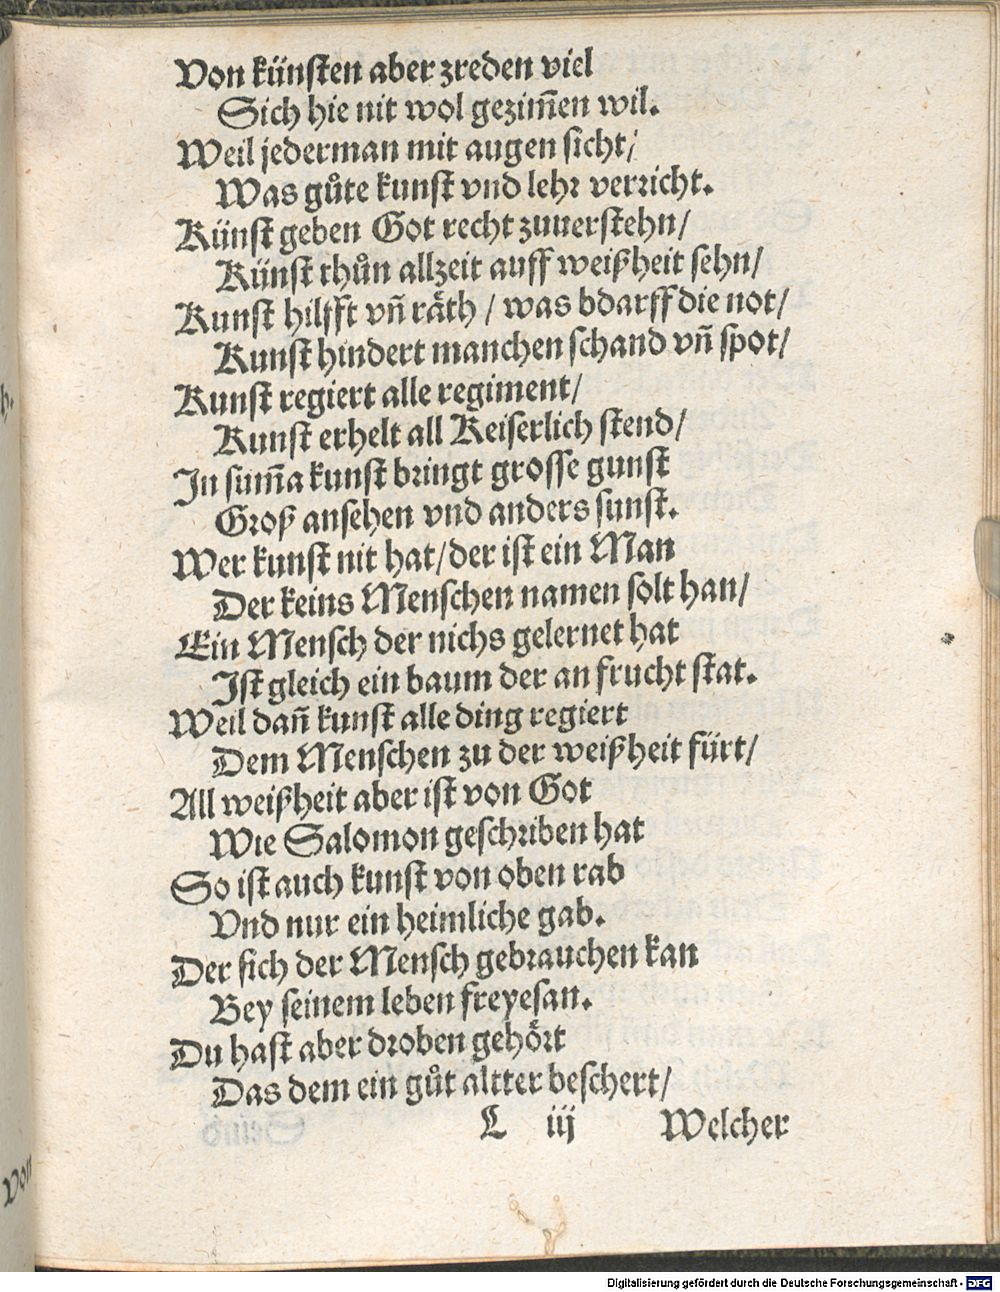 Von künsten aber zreden viel
Sich hie nit wol gezim̃en wil.
Weil jederman mit augen sicht/
Was gůte kunst vnd lehr verricht.
Künst geben Got recht zuuerstehn/
Künst thůn allzeit auff weißheit sehn/
Kunst hilfft vñ räth / was bdarff die not/
Kunst hindert manchen schand vñ spot/
Kunst regiert alle regiment/
Kunst erhelt all Keiserlich stend/
In sum̃a kunst bringt grosse gunst
Groß ansehen vnd anders sunst.
Wer kunst nit hat/der ist ein Man
Der keins Menschen namen solt han/
Ein Mensch der nichs gelernet hat
Ist gleich ein baum der an frucht stat.
Weil dañ kunst alle ding regiert
Dem Menschen zu der weißheit fürt/
All weißheit aber ist von Got
Wie Salomon geschriben hat
So ist auch kunst von oben rab
Vnd nur ein heimliche gab.
Der sich der Mensch gebrauchen kan
Bey seinem leben freyesan.
Du hast aber droben gehört
Das dem ein gůt altter beschert/
L iij Welcher
Von
Digitalisierung gefördert durch die Deutsche Forschungsgemeinschaft - DFG